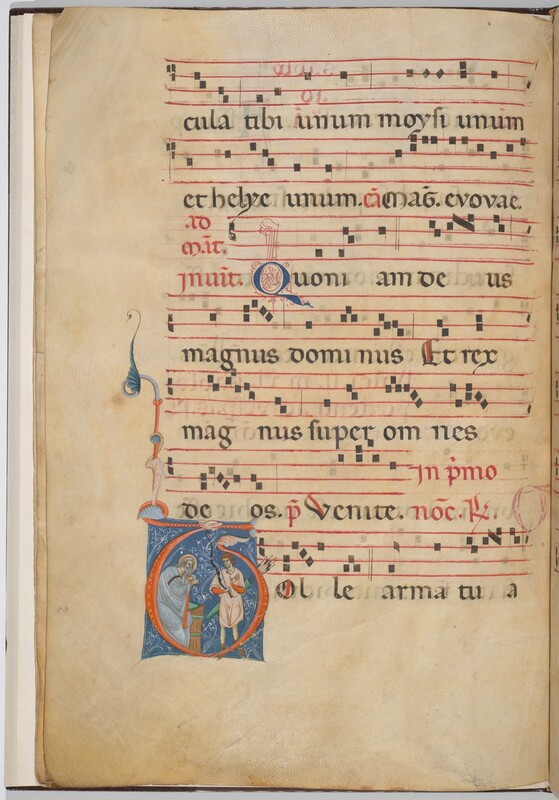 cula tibi unum moysi unum
et helye unum. cā Mag̃. evovae.
ad
mat̃.
inuit̃. Quoni am de us
magnus domi nus Et rex
mag nus super om nes
de os. p̃ Venite. In p̃mo
noc̃. R̃
Tol le arma tu a